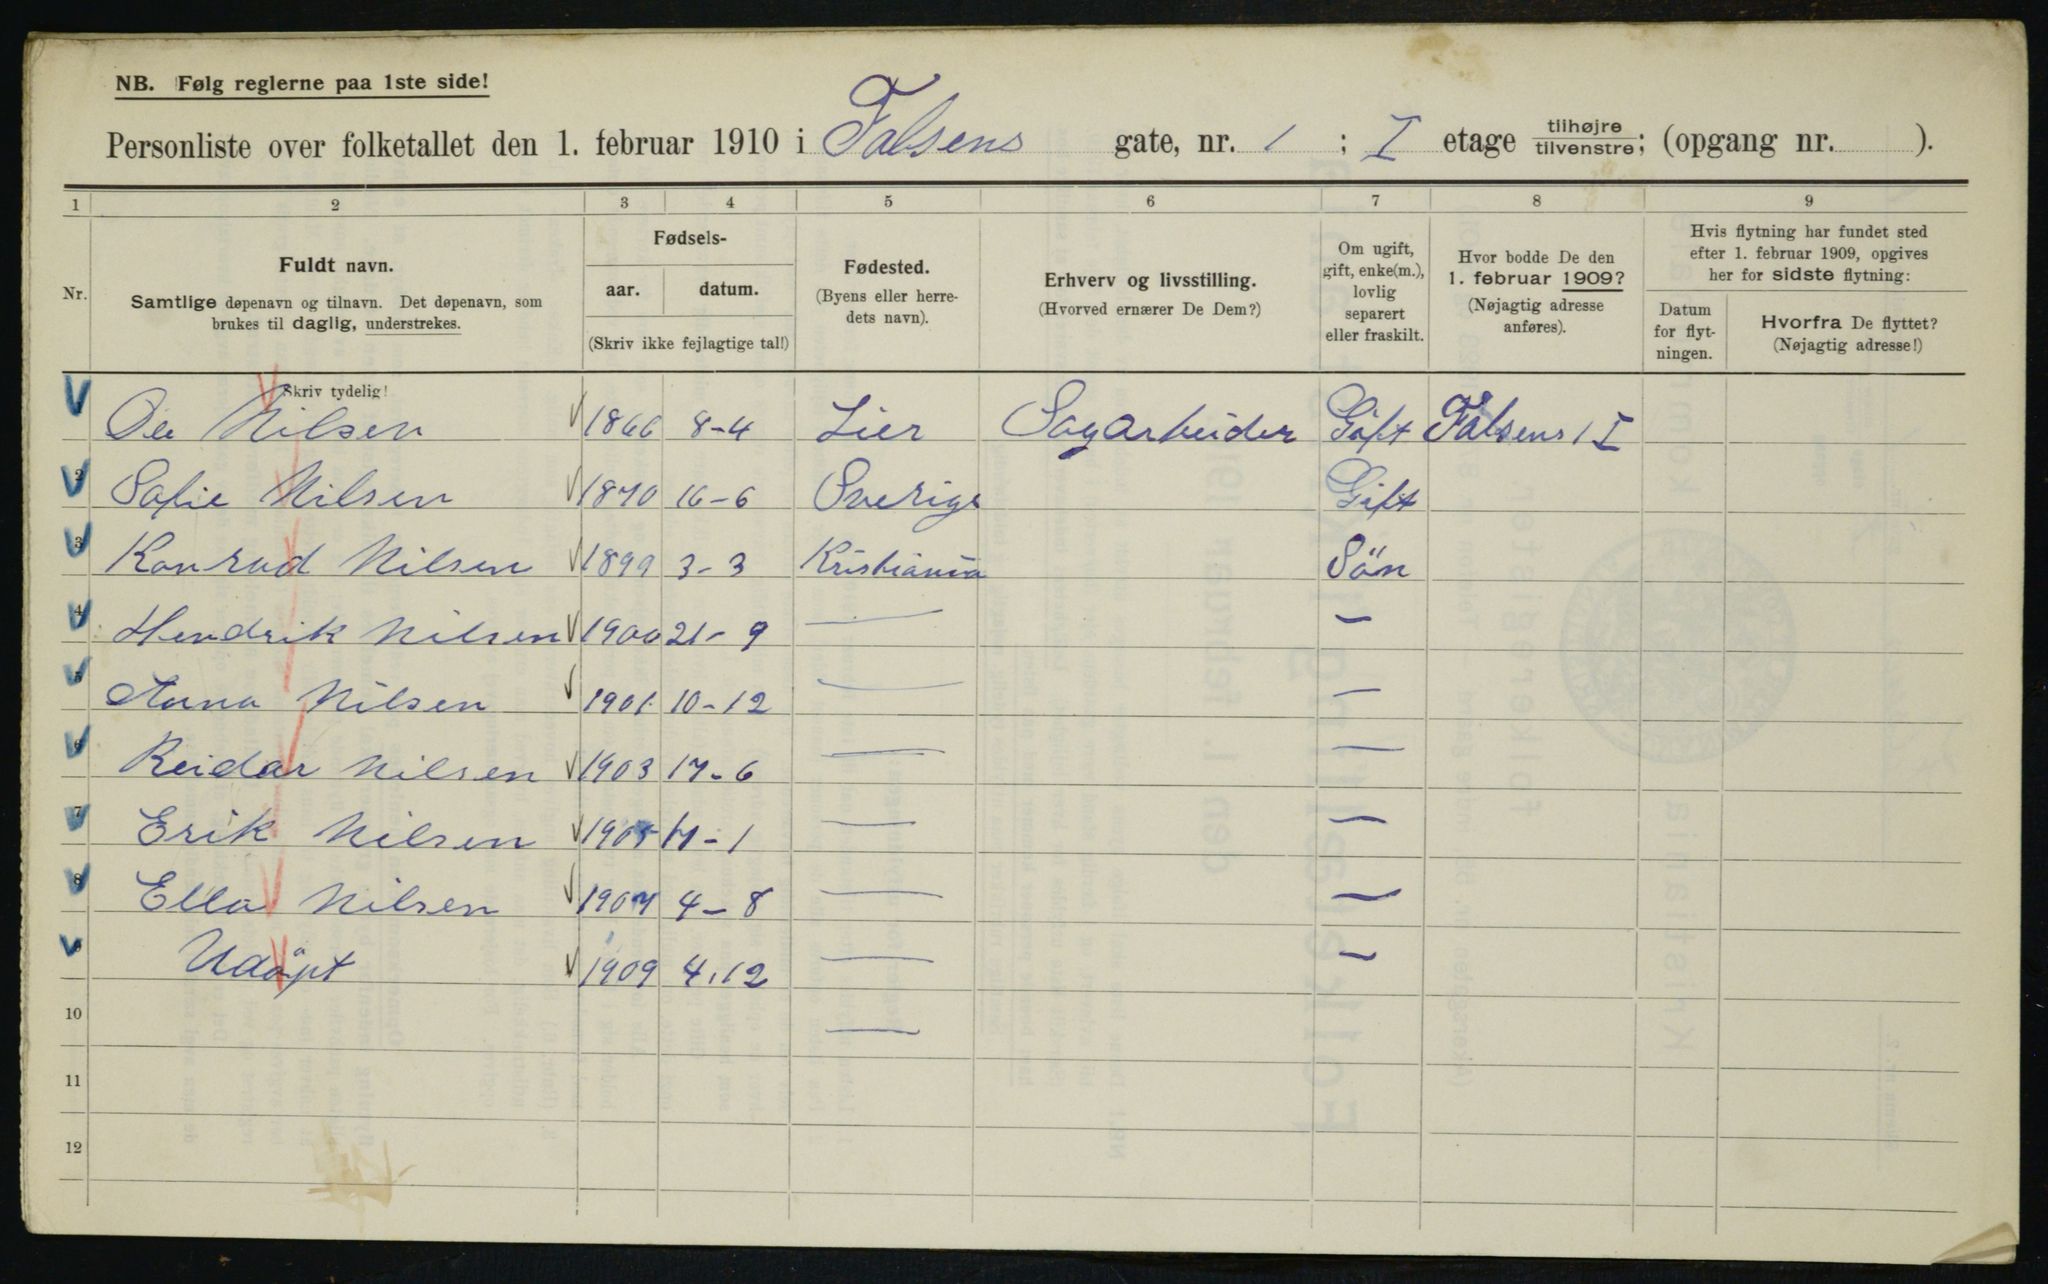 NB. Følg reglerne paa 1ste side!
Personliste over folketallet den 1. februar 1910 i Falsens gate, nr. 1 ; I etage tilhøjre/tilvenstre; (opgang nr. ).
1 2 3 4 5 6 7 8 9
Nr.
Fuldt navn.
Samtlige døpenavn og tilnavn. Det døpenavn, som
brukes til daglig, understrekes.
Fødsels-
aar. datum.
(Skriv ikke fejlagtige tal!)
Fødested.
(Byens eller herre-
dets navn).
Erhverv og livsstilling.
(Hvorved ernærer De Dem?)
Om ugift,
gift, enke(m.),
lovlig
separert
eller fraskilt.
Hvor bodde De den
1. februar 1909?
(Nøjagtig adresse
anføres).
Hvis flytning har fundet sted
efter 1. februar 1909, opgives
her for sidste flytning:
Datum
for flyt-
ningen.
Hvorfra De flyttet?
(Nøjagtig adresse!)
Skriv tydelig!
Ole Nilsen 1866 8-4 Lier Sagarbeider Gift Falsens 1 I
2 Sofie Nilsen 1870 16-6 Sverige Gift
3 Konrad Nilsen 1899 3-3 Kristiania Sön
4 Hendrik Nilsen 1900 21-9 — —
5 Anna Nilsen 1901 10-12 — —
6 Reidar Nilsen 1903 17-6 — —
7 Erik Nilsen 1905 17-1 — —
8 Ella Nilsen 1907 4-8 — —
9 Udöpt 1909 4.12 — —
10 —
11
12